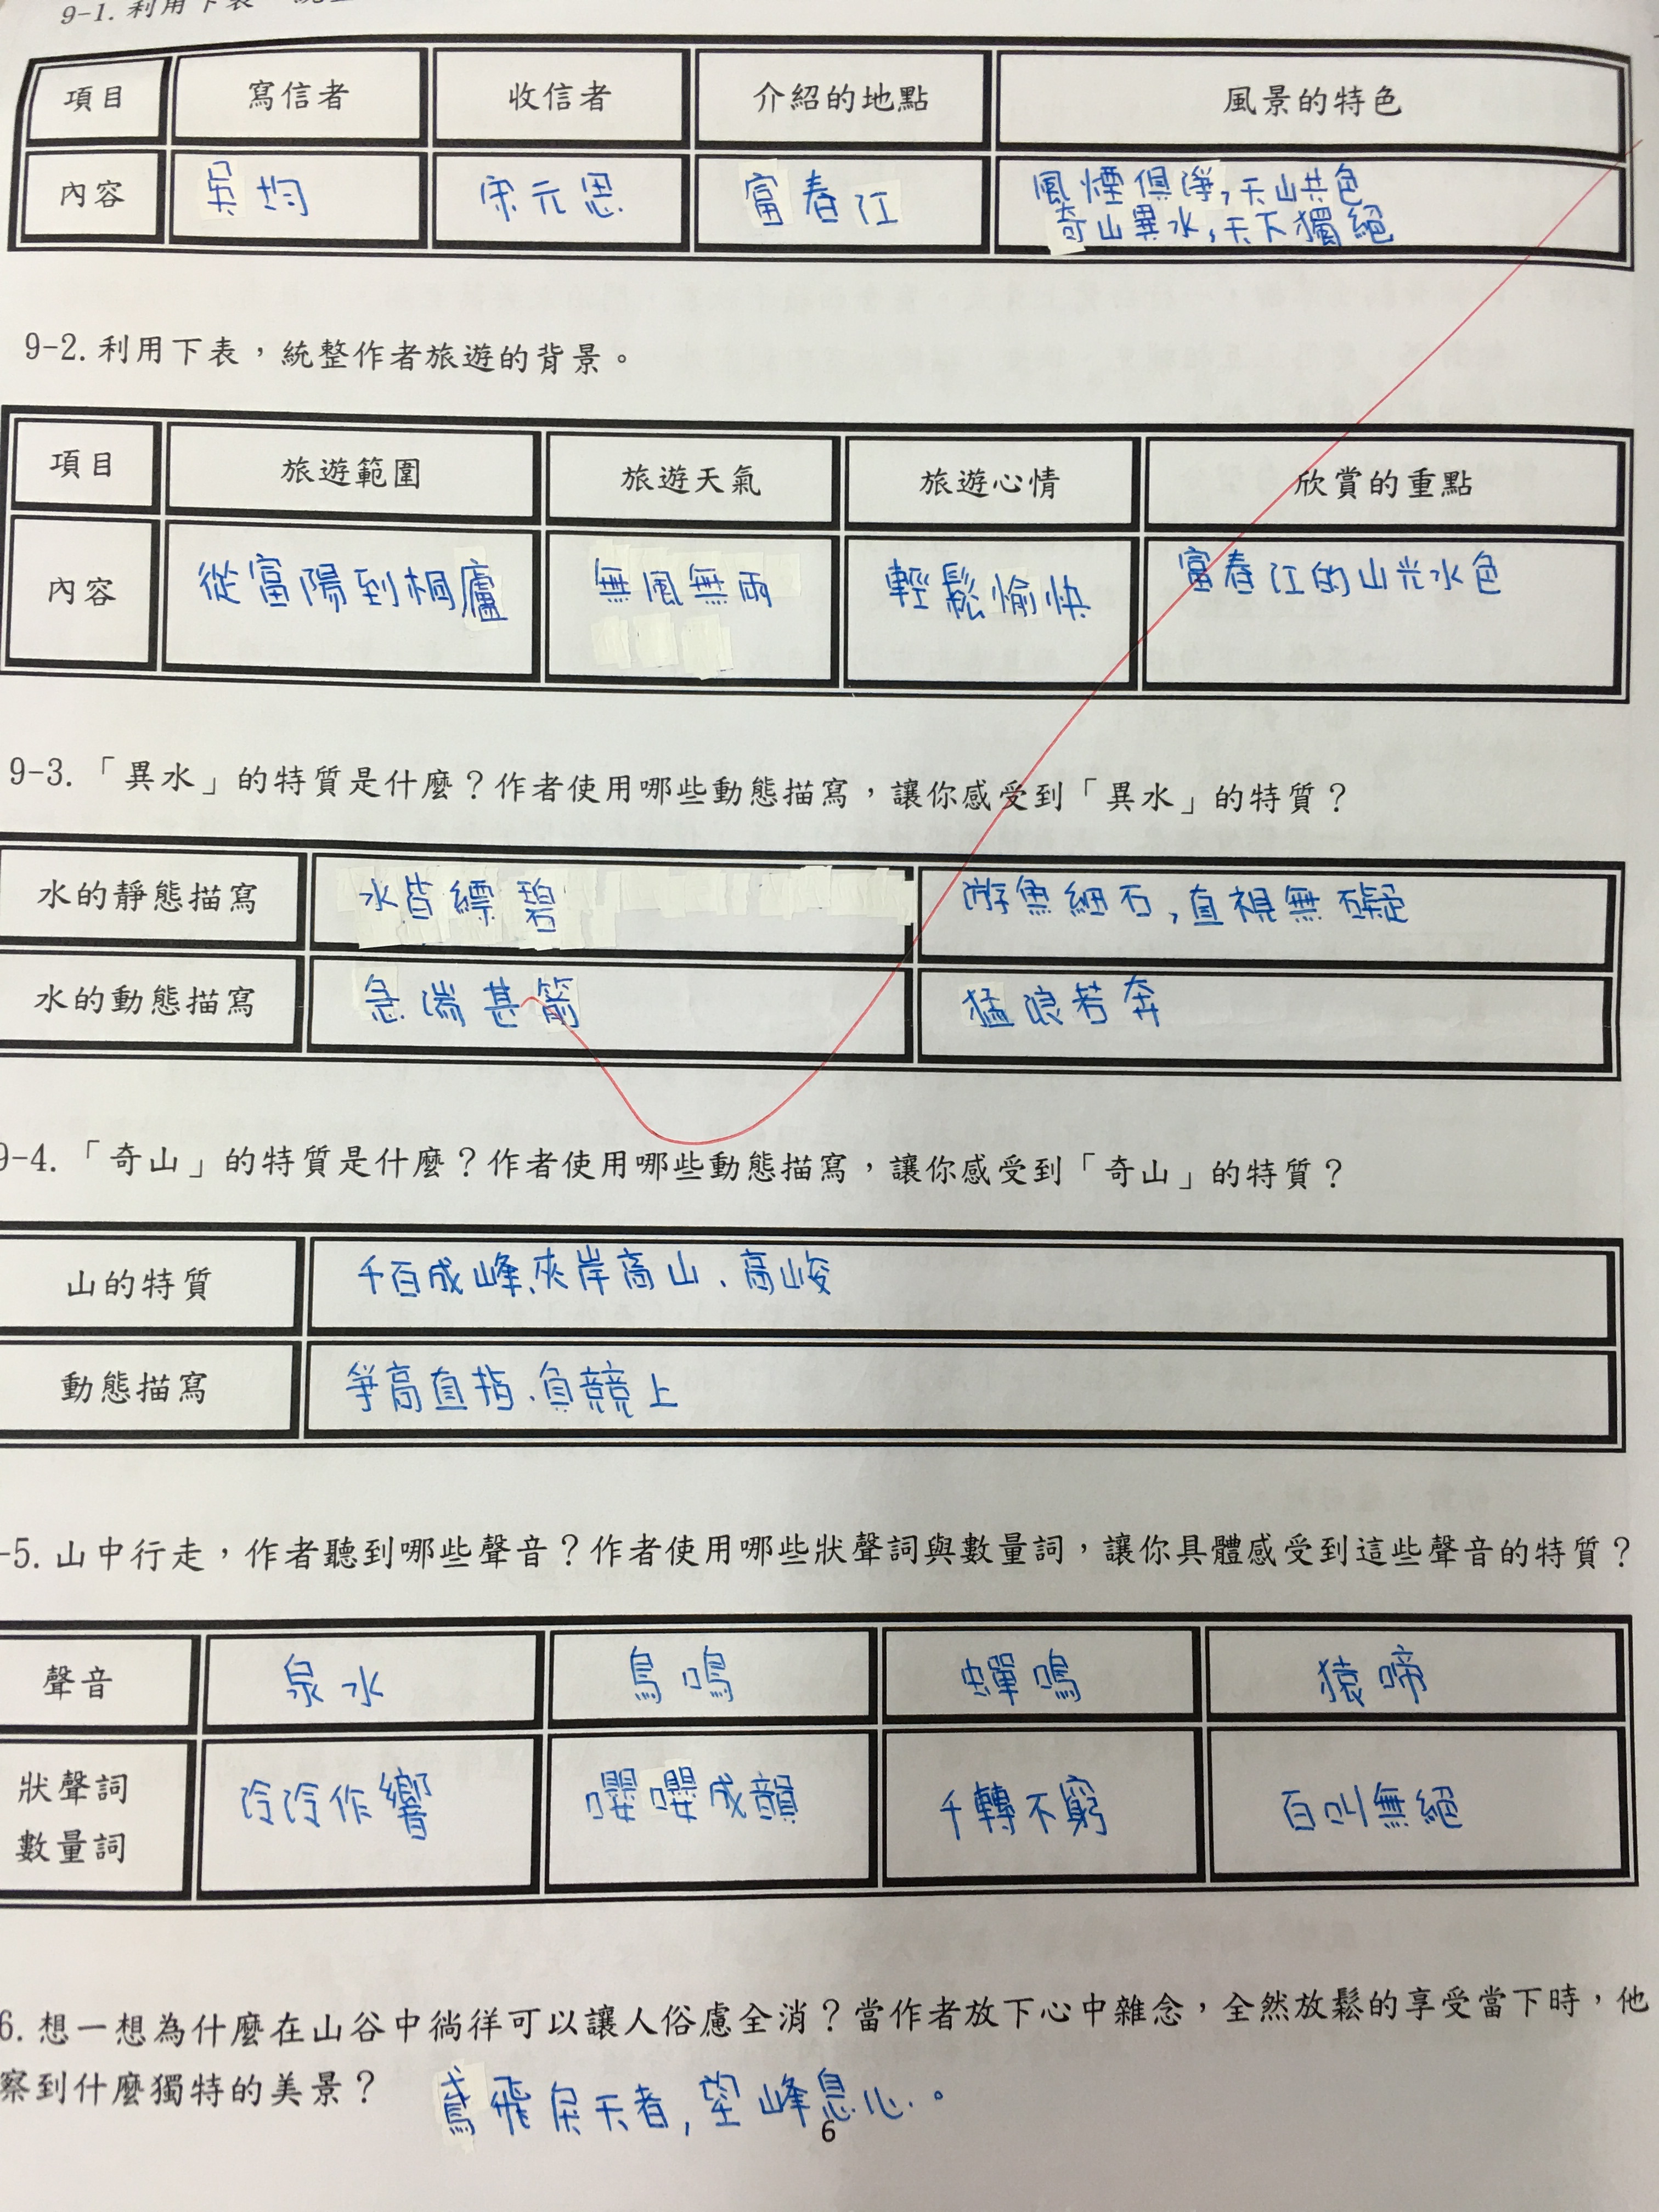 9-1. 利用下表
項目 寫信者 收信者 介紹的地點 風景的特色
內容 吳均 宋元思 富春江 風煙俱淨,天山共色
奇山異水,天下獨絕
9-2. 利用下表，統整作者旅遊的背景。
項目 旅遊範圍 旅遊天氣 旅遊心情 欣賞的重點
內容 從富陽到桐廬 無風無雨 輕鬆愉快 富春江的山光水色
9-3. 「異水」的特質是什麼？作者使用哪些動態描寫，讓你感受到「異水」的特質？
水的靜態描寫 水皆縹碧 游魚細石,直視無礙
水的動態描寫 急湍甚箭 猛浪若奔
9-4. 「奇山」的特質是什麼？作者使用哪些動態描寫，讓你感受到「奇山」的特質？
山的特質 千百成峰、夾岸高山、高峻
動態描寫 爭高直指、負競上
-5. 山中行走，作者聽到哪些聲音？作者使用哪些狀聲詞與數量詞，讓你具體感受到這些聲音的特質？
聲音 泉水 鳥鳴 蟬鳴 猿啼
狀聲詞 泠泠作響 嚶嚶成韻 千轉不窮 百叫無絕
數量詞
6. 想一想為什麼在山谷中徜徉可以讓人俗慮全消？當作者放下心中雜念，全然放鬆的享受當下時，他
察到什麼獨特的美景？ 鳶飛戾天者,望峰息心。
6